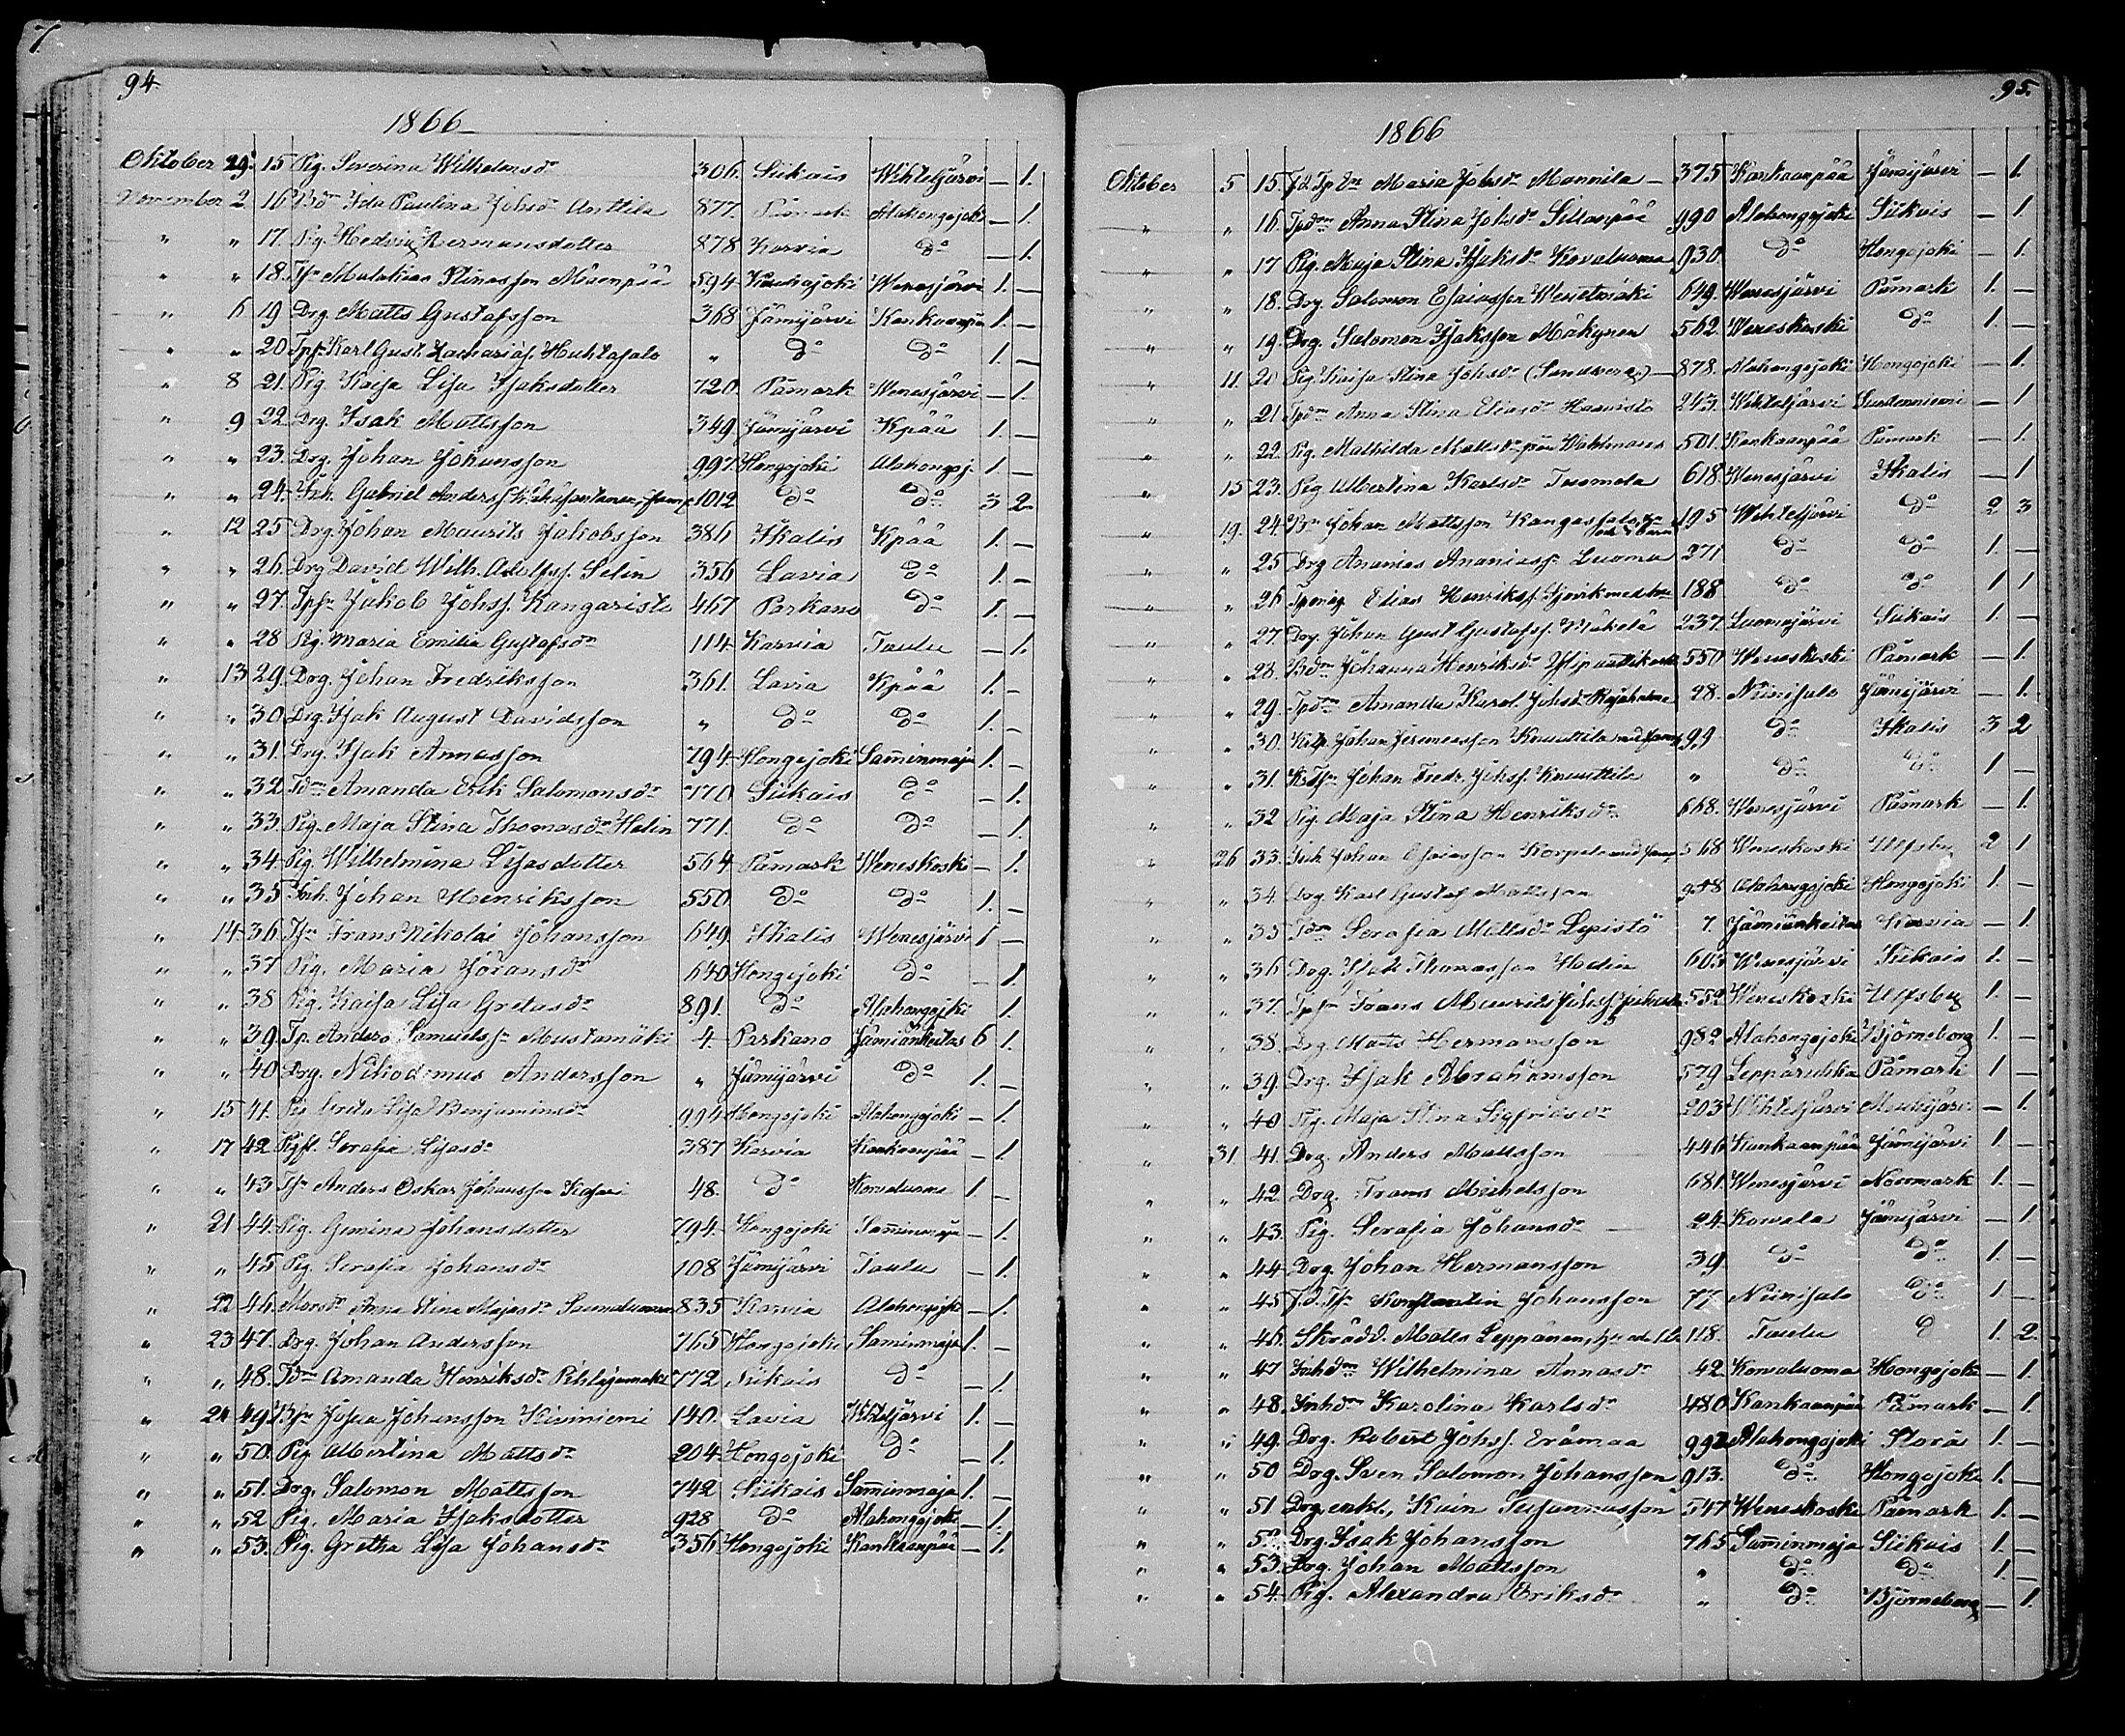 7
94
1866
Oktober 29. 15 Pig. Severina Wilhelmsd:r 306. Siikais Wihteljärvi — 1.
November 2 16 Bd:r Ida Paulina Johsd:r Anttila 877. Påmark Alahongojoki — 1.
" " 17. Pig. Hedvig Hermansdotter 878 Karvia D:o — 1.
" " 18. Tps:n Malakias Stinasson 594 Kauhajoki Wenesjärvi 1. —
" 6 19 Drg. Matts Gustafsson 368 Jämijärvi Kankaanpää 1. —
" " 20 Tps:n Karl Gust. Zachariæs. Huhtasalo " D:o D:o 1. —
" 8 21. Pig. Kaisa Lisa Isaksdotter 720. Påmark Wenesjärvi — 1.
" 9 22 Drg. Isak Mattsson 349. Jämijärvi Kpää 1. —
" " 23. Drg. Johan Johansson 997. Hongojoki Alahongoj. 1. —
" " 24. Inh. Gabriel Anderss. 1012 D:o D:o 3 2.
" 12 25 Drg. Johan Maurits Jakobsson 386 Ikalis Kpää 1. —
" " 26. Drg David Wilh. Adolfss. Selin 356 Lavia D:o 1. —
" " 27. Tps:n Jakob Johss. Kangaristo 467 Parkano D:o 1. —
" " 28 Pig. Maria Emilia Gustafsd:r 114 Karvia Taulu — 1.
" 13 29. Drg. Johan Fredriksson 361. Lavia Kpää 1. —
" " 30. Drg. Isak August Davidsson " D:o D:o 1. —
" " 31. Drg. Isak Annasson 794 Hongojoki Samminmaja 1. —
" " 32. Td:r Amanda Erik Salomonsd:r 770 Siikais D:o — 1.
" " 33. Pig. Maja Stina Thomasd:r Helin 771. D:o D:o — 1.
" " 34. Pig. Wilhelmina Lisasdotter 564 Påmark Weneskoski — 1.
" " 35 Inh. Johan Henriksson 550 D:o D:o 1. —
" 14 36. Ts:n Frans Nikolai Johansson 649. Ikalis Wenesjärvi 1 —
" " 37 Pig. Maria Göransd:r 640 Hongojoki D:o — 1.
" " 38 Pig. Kaisa Lisa Gretasd:r 891. D:o Alahongojki 1.
" " 39. Tp. Anders Samuelss:n Mustamäki 4. Parkano Jämiänkeitas 6 1.
" " 40. Drg. Nikodemus Andersson " Jämijärvi D:o 1. —
" 15 41. Pig Greta Lisa Benjaminsd:r 994 Hongojoki Alahongojoki — 1.
" 17 42. Serafia Lisasd:r 387 Karvia Kankaanpää — 1.
" " 43 Ts:n Anders Oskar Johansson 48. D:o Kovaluoma 1 —
" 21 44. Pig. Gemina Johansdotter 794. Hongojoki Samminmaja — 1.
" " 45 Pig Serafia Johansd:r 108 Jämijärvi Taulu — 1.
" 22 46. Anna Stina Majasd:r 835 Karvia Alahongojoki — 1.
" 23 47. Drg. Johan Andersson 765 Hongojoki Saminmaja 1. —
" " 48. Td:r Amanda Henriksd:r 772 Siikais D:o — 1.
" 24 49. Bs:n Josua Johansson Kiviniemi 140. Lavia Wihteljärvi 1. —
" " 50. Pig Albertina Mattsd:r 204 Hongojoki D:o — 1.
" " 51. Drg. Salomon Mattsson 742 Siikais Samminmaja 1. —
" " 52 Pig. Maria Isaksdotter 928 D:o Alahongojoki — 1.
" " 53. Pig. Gretha Lisa Johansd:r 356 Hongojoki Kankaanpää — 1.
95.
1866
Oktober 5 15. Maria Johsd:r Mannila — 375 Kankaanpää Jämijärvi — 1.
" " 16. Tpd:r Anna Stina Johsd:r Sillanpää 990 Alahongojoki Siikais — 1.
" " 17 Pig. Maja Stina Isaksd:r Kovaluoma 930 D:o Hongojoki — 1.
" " 18. Drg Salomon Esaiasson 649. Wenesjärvi Påmark 1. —
" " 19. Drg. Salomon Isaksson Mäkynen 562 Weneskoski D:o 1. —
" 11. 20 Pig. Kaisa Stina Johsd:r (Sandberg) — 878. Alahongojoki Hongojoki — 1.
" " 21. Tpd:r Anna Stina Eliasd:r Haavisto 243. Wihteljärvi — 1
" " 22. Pig. Mathilda Mattsd:r 501. Kankaanpää Påmark — 1.
" 15 23. Pig Albertina Karlsd:r Tuomola 618. Wenesjärvi Ikalis — 1
" 19. 24. Johan Mattsson Kangassalo 195 Wihteljärvi D:o 2 3
" " 25 Drg Ananias Ananiass:n Luoma 271 D:o D:o 1. —
" " 26 Elias Henrikss. 188 D:o D:o 1 1
" " 27. Drg. Johan Gust Gustafss. Mäkelä 237. Luomajärvi Siikais 1. —
" " 28. Johanna Henriksd:r 550 Weneskoski Påmark — 1.
" " 29. Tpd:r Amanda Karol. Johsd:r 28. Niinisalo Jämijärvi — 1.
" " 30. Johan Jeremiasson Knuuttila med famj 99 D:o Ikalis 3 2
" " 31. Johan Fredr. Johss. Knuuttila " D:o D:o 1 —
" " 32 Pig. Maja Stina Henriksd:r 668. Wenesjärvi Påmark — 1.
" 26 33. Inh. Johan Esaiasson Korpela med famj 568 Weneskoski Ulfsby 2 1
" " 34. Drg Karl Gustaf Mattsson 948 Alahongojoki Hongojoki 1. —
" " 35 Td:r Serafia Mattsd:r Lepistö 7. Jämiänkeitas Karvia — 1
" " 36 Drg. Isak Thomasson Hedin 603 Wenesjärvi Siikais 1. —
" " 37. Tps:n Frans Maurits Johss. 552 Weneskoski Ulfsby 1. —
" " 38. Drg. Matts Hermansson 982 Alahongojoki Björneborg 1. —
" " 39. Drg. Isak Abrahamsson 579 Påmark 1 —
" " 40 Pig. Maja Stina Sigfridsd:r 203 Wihteljärvi — 1.
" 31. 41. Drg. Anders Mattsson 446 Kankaanpää Jämijärvi 1. —
" " 42. Drg. Frans Michelsson 681 Wenesjärvi Norrmark 1. —
" " 43. Pig. Serafia Johansd:r 24 Kowala Jämijärvi — 1.
" " 44 Drg. Johan Hermansson 39 D:o D:o 1. —
" " 45 Konstantin Johansson 77 Niinisalo D:o 1 —
" " 46. Skrädd. Matts Leppänen, 118. Taulu D 1. 2.
" " 47 Inhd:r Wilhelmina Annasd:r 42 Kowaluoma Hongojoki — 1.
" " 48. Inhd:r Karolina Karlsd:r 480 Kankaanpää Påmark — 1.
" " 49. Drg. Robert Johss. Erämaa 992 Alahongojoki Storå 1. —
" " 50 Drg. Sven Salomon Johansson 913. D:o Hongojoki 1. —
" " 51 Drg. enkl. Kuin Susannasson 547 Weneskoski Påmark 1. —
" " 52. Drg. Isak Johansson 765 Samminmaja Siikais 1. —
" " 53. Drg. Johan Mattsson " D:o D:o 1 —
" " 54. Pig. Alexandra Eriksd:r " D:o Björneborg — 1.